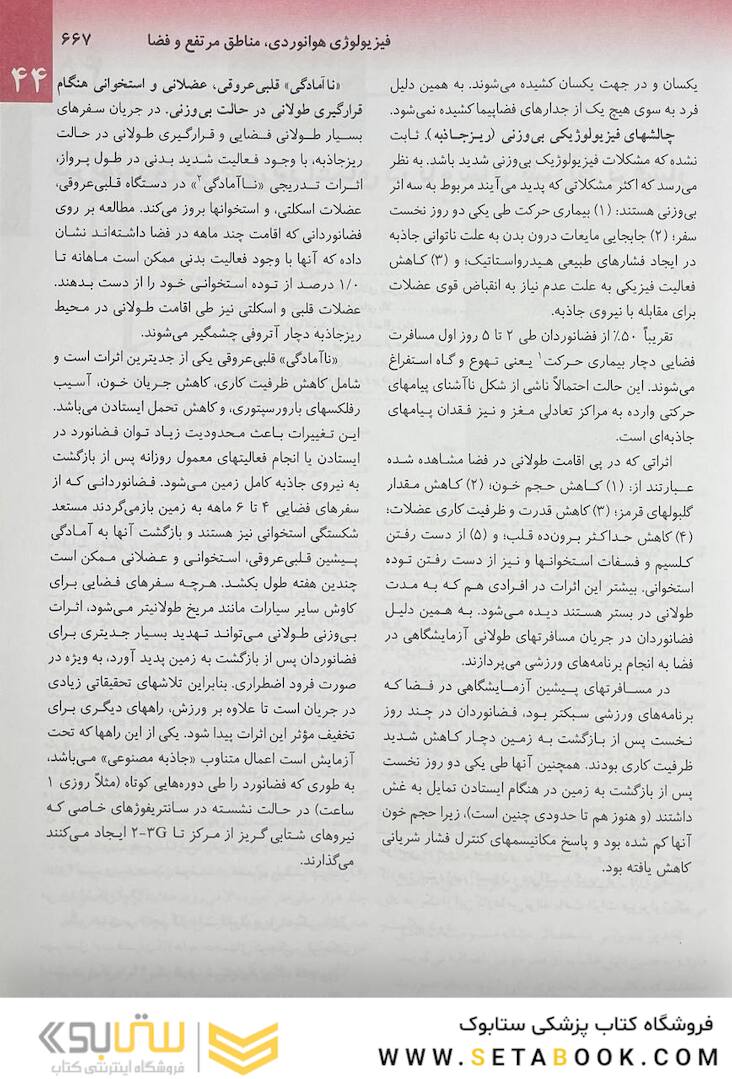 فیزیولوژی هوانوردی، مناطق مرتفع و فضا
۶۶۷
۴۴
یکسان و در جهت یکسان کشیده می‌شوند. به همین دلیل
فرد به سوی هیچ یک از جدارهای فضاپیما کشیده نمی‌شود.
چالشهای فیزیولوژیکی بی‌وزنی (ریزجاذبه). ثابت
نشده که مشکلات فیزیولوژیک بی‌وزنی شدید باشد. به نظر
می‌رسد که اکثر مشکلاتی که پدید می‌آیند مربوط به سه اثر
بی‌وزنی هستند: (۱) بیماری حرکت طی یکی دو روز نخست
سفر؛ (۲) جابجایی مایعات درون بدن به علت ناتوانی جاذبه
در ایجاد فشارهای طبیعی هیدرواستاتیک؛ و (۳) کاهش
فعالیت فیزیکی به علت عدم نیاز به انقباض قوی عضلات
برای مقابله با نیروی جاذبه.
تقریباً ۵۰٪ از فضانوردان طی ۲ تا ۵ روز اول مسافرت
فضایی دچار بیماری حرکت۱ یعنی تهوع و گاه استفراغ
می‌شوند. این حالت احتمالاً ناشی از شکل ناآشنای پیامهای
حرکتی وارده به مراکز تعادلی مغز و نیز فقدان پیامهای
جاذبه‌ای است.
اثراتی که در پی اقامت طولانی در فضا مشاهده شده
عبارتند از: (۱) کاهش حجم خون؛ (۲) کاهش مقدار
گلبولهای قرمز؛ (۳) کاهش قدرت و ظرفیت کاری عضلات؛
(۴) کاهش حداکثر برون‌ده قلب؛ و (۵) از دست رفتن
کلسیم و فسفات استخوانها و نیز از دست رفتن توده
استخوانی. بیشتر این اثرات در افرادی هم که به مدت
طولانی در بستر هستند دیده می‌شود. به همین دلیل
فضانوردان در جریان مسافرتهای طولانی آزمایشگاهی در
فضا به انجام برنامه‌های ورزشی می‌پردازند.
در مسافرتهای پیشین آزمایشگاهی در فضا که
برنامه‌های ورزشی سبکتر بود، فضانوردان در چند روز
نخست پس از بازگشت به زمین دچار کاهش شدید
ظرفیت کاری بودند. همچنین آنها طی یکی دو روز نخست
پس از بازگشت به زمین در هنگام ایستادن تمایل به غش
داشتند (و هنوز هم تا حدودی چنین است)، زیرا حجم خون
آنها کم شده بود و پاسخ مکانیسمهای کنترل فشار شریانی
کاهش یافته بود.
«ناآمادگی» قلبی‌عروقی، عضلانی و استخوانی هنگام
قرارگیری طولانی در حالت بی‌وزنی. در جریان سفرهای
بسیار طولانی فضایی و قرارگیری طولانی در حالت
ریزجاذبه، با وجود فعالیت شدید بدنی در طول پرواز،
اثرات تدریجی «ناآمادگی۲» در دستگاه قلبی‌عروقی،
عضلات اسکلتی، و استخوانها بروز می‌کند. مطالعه بر روی
فضانوردانی که اقامت چند ماهه در فضا داشته‌اند نشان
داده که آنها با وجود فعالیت بدنی ممکن است ماهانه تا
۱/۰ درصد از توده استخوانی خود را از دست بدهند.
عضلات قلبی و اسکلتی نیز طی اقامت طولانی در محیط
ریزجاذبه دچار آتروفی چشمگیر می‌شوند.
«ناآمادگی» قلبی‌عروقی یکی از جدیترین اثرات است و
شامل کاهش ظرفیت کاری، کاهش جریان خون، آسیب
رفلکسهای بارورسپتوری، و کاهش تحمل ایستادن می‌باشد.
این تغییرات باعث محدودیت زیاد توان فضانورد در
ایستادن یا انجام فعالیتهای معمول روزانه پس از بازگشت
به نیروی جاذبه کامل زمین می‌شود. فضانوردانی که از
سفرهای فضایی ۴ تا ۶ ماهه به زمین بازمی‌گردند مستعد
شکستگی استخوانی نیز هستند و بازگشت آنها به آمادگی
پیشین قلبی‌عروقی، استخوانی و عضلانی ممکن است
چندین هفته طول بکشد. هرچه سفرهای فضایی برای
کاوش سایر سیارات مانند مریخ طولانیتر می‌شود، اثرات
بی‌وزنی طولانی می‌تواند تهدید بسیار جدیتری برای
فضانوردان پس از بازگشت به زمین پدید آورد، به ویژه در
صورت فرود اضطراری. بنابراین تلاشهای تحقیقاتی زیادی
در جریان است تا علاوه بر ورزش، راههای دیگری برای
تخفیف مؤثر این اثرات پیدا شود. یکی از این راهها که تحت
آزمایش است اعمال متناوب «جاذبه مصنوعی» می‌باشد،
به طوری که فضانورد را طی دوره‌هایی کوتاه (مثلاً روزی ۱
ساعت) در حالت نشسته در سانتریفوژهای خاصی که
نیروهای شتابی گریز از مرکز تا ۲-۳G ایجاد می‌کنند
می‌گذارند.
فروشگاه کتاب پزشکی ستابوک
WWW.SETABOOK.COM
ستابوک
فروشگاه اینترنتی کتاب